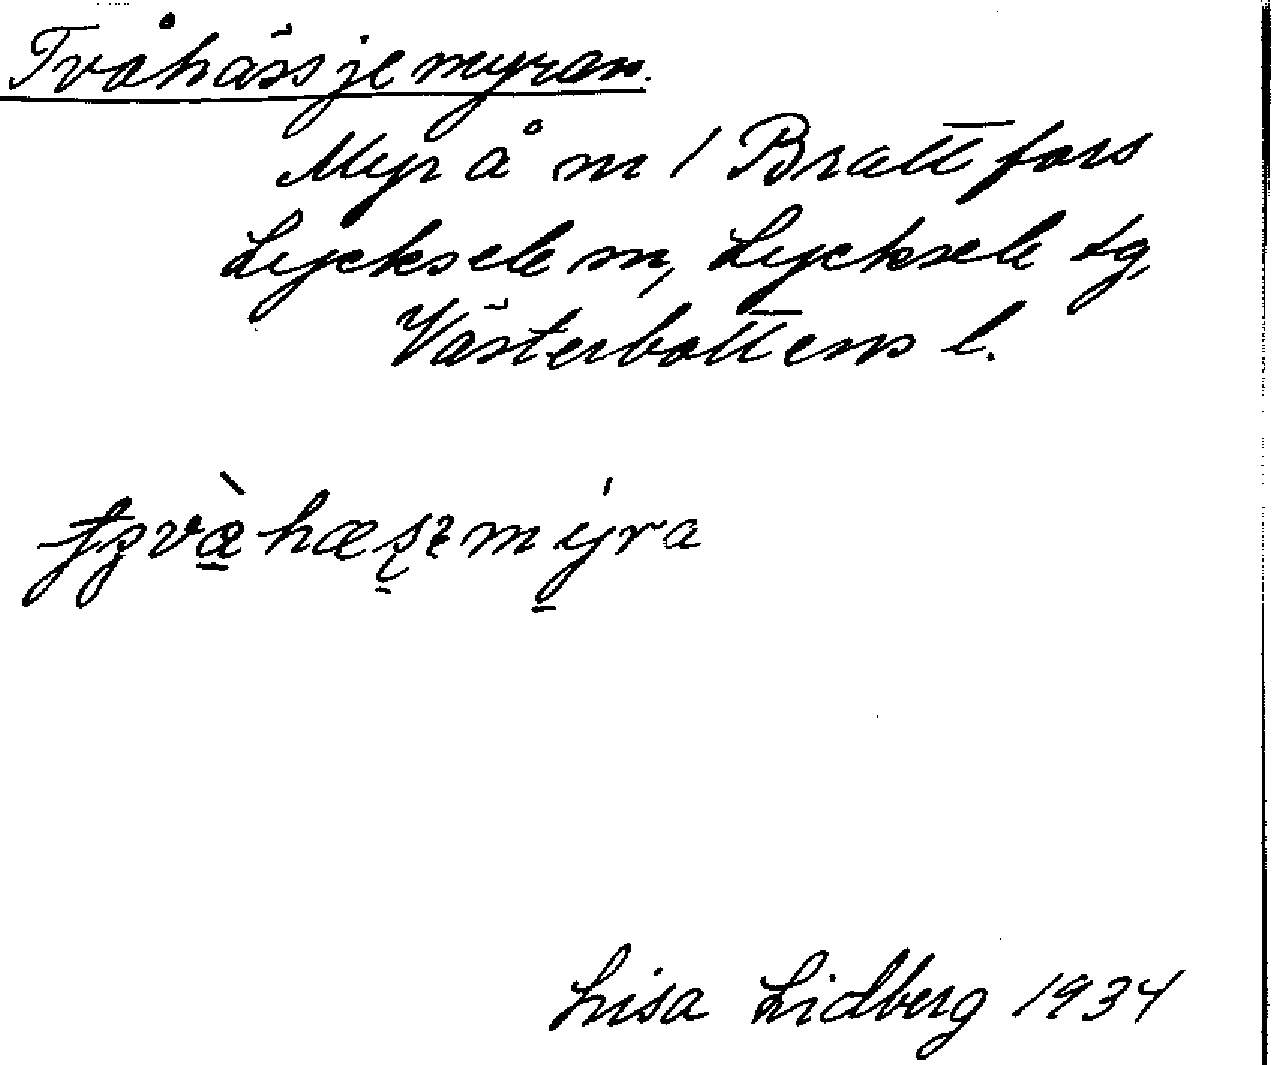 Tvåhässjemyran.
Myr å m / Brattfors
Lycksele m, Lycksele tg,
Västerbottens l.
Lisa Lidberg 1934